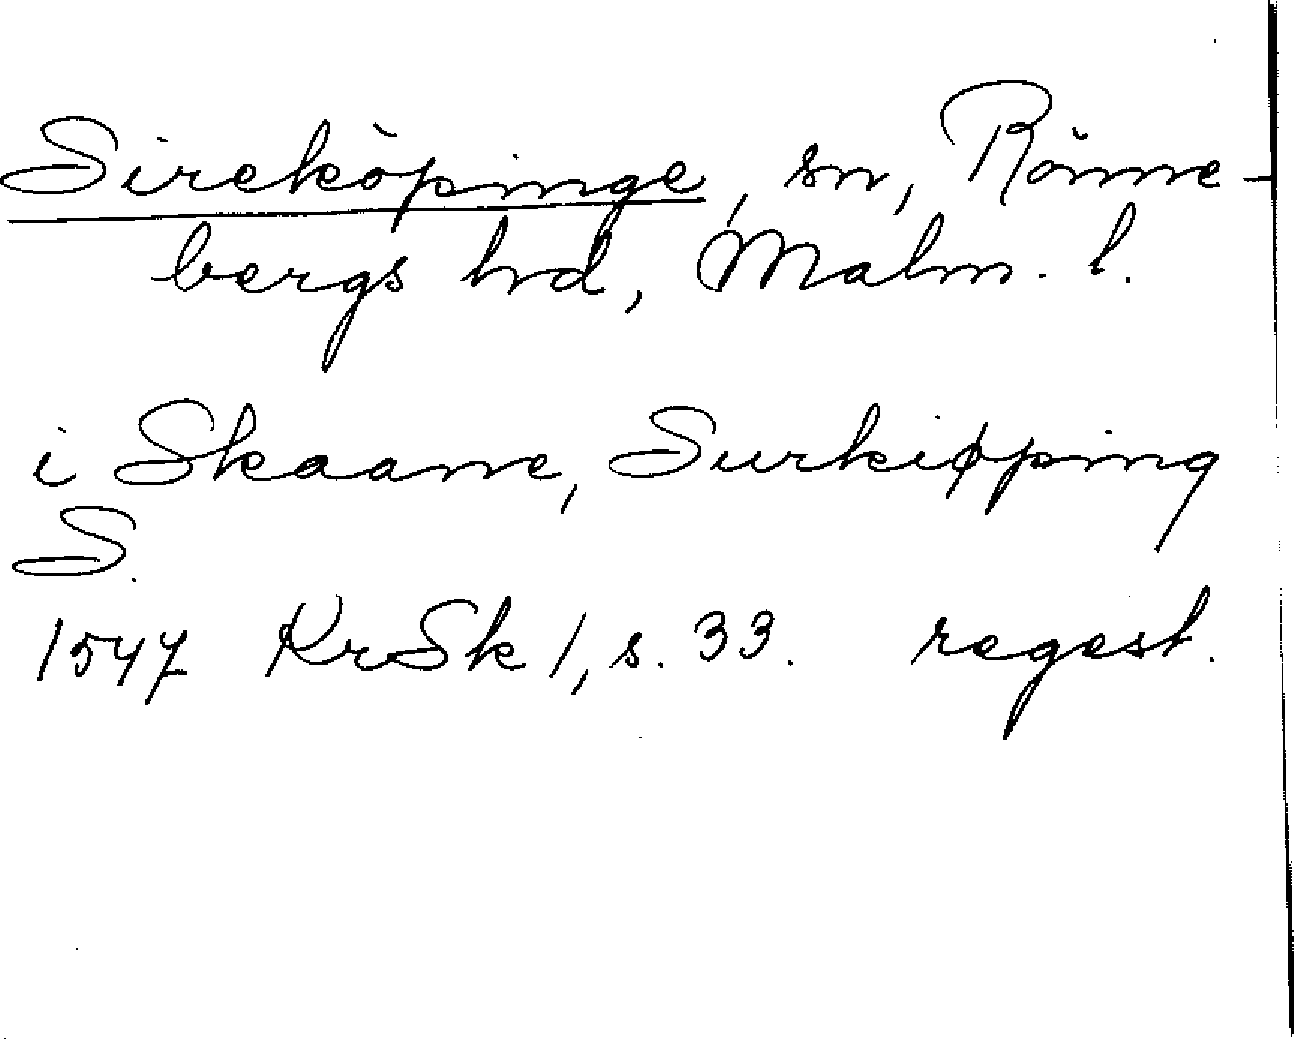 Sireköpinge, sn, Rönne-
bergs hrd, Malm. l.
i Skaane, Surkiøping
S.
1547 KrSk 1, s. 33. regest.